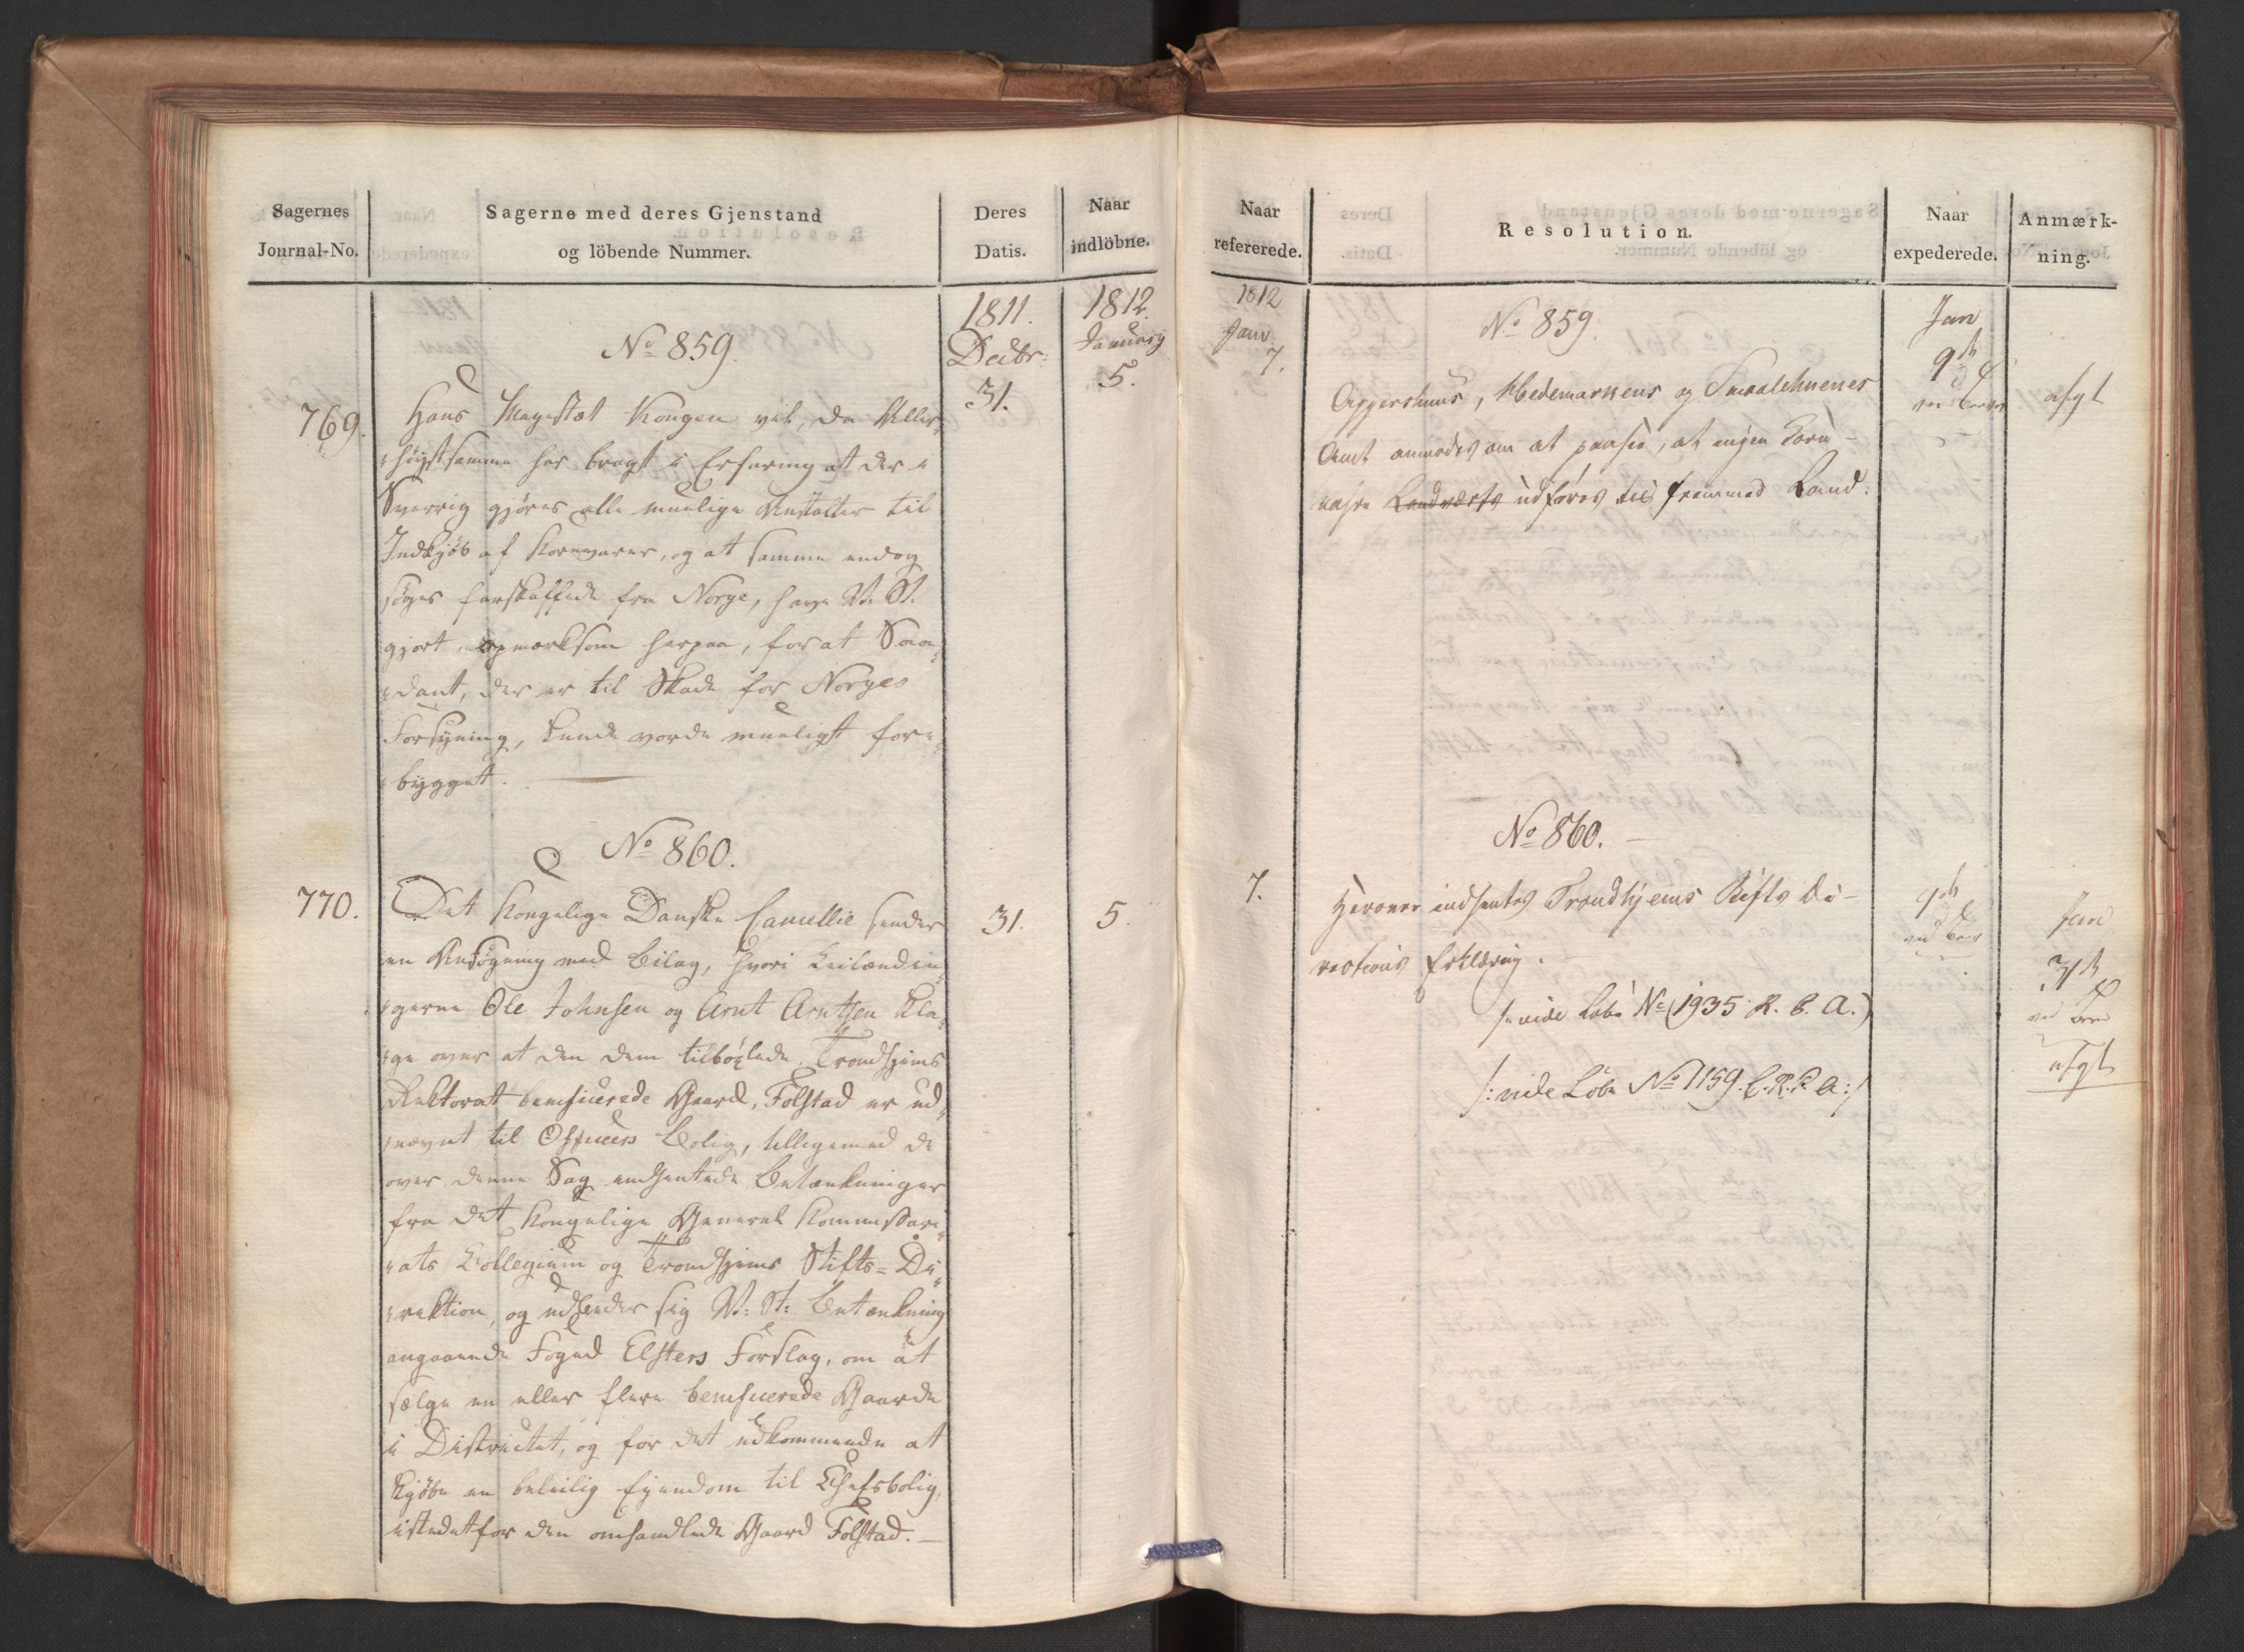 Sagernes
Journal-No.
Sagerne med deres Gjenstand
og löbende Nummer.
Deres
Datis.
Naar
indlöbne.
1811.
Decbr:
31.
1812.
January
5.
No 859.
769.
Hans Majestæt Kongen vil, da Aller-
høystsamme har bragt i Erfaring at der i
Sverrig gjøres alle muelige Anstalter til
Indkjøb af Kornvarer, og at samme endog
søges forskaffede fra Norge, have V. St.
gjort opmærksom herpaa, for at Saa-
dant, der er til Skade for Norges
Forsyning, kunde vorde mueligst fore-
bygget.
No 860.
770.
Det Kongelige Danske Cancellie sender
en Ansøgning med Bilag, hvori Leilændin-
gerne Ole Johnsen og Arnt Arntsen kla-
ge over at den dem tilbøxlede Trondhjems
Rektorat beneficerede Gaard, Folstad er ud-
nævnt til Officiers Bolig, tilligemed de
over denne Sag indhentede Betænkninger
fra det Kongelige General Kommissari-
ats Collegium og Trondhjems Stifts-Di-
rektion, og udbeder sig V: St: Betænkning
angaaende Foged Elsters Forslag, om at
sælge en eller flere beneficerede Gaarde
i Districtet, og for det udkommende at
kjøbe en beleilig Ejendom til Chefsbolig,
istedetfor den omhandlede Gaard Folstad.
31.
5.
Naar
refererede.
Resolution.
Naar
expederede.
Anmærk-
ning.
1812
Janr
7.
No 859.
Aggershuus, Hedemarkens og Smaalehnenes
Amt anmodes om at paasee, at ingen Korn-
vahre Landværts udføres til fremmed Land.
Jan
9de
ved Brev
afgt
No 860.
7.
Herover indhentes Trondhjems Stifts Di-
rections Erklæring.
/: vide Løbe No (1935 R. C. A.)
/: vide Løbe No 1159. C. R. C. A:/
9de
ved Brev
Jan
31te
ved Brev
afgt